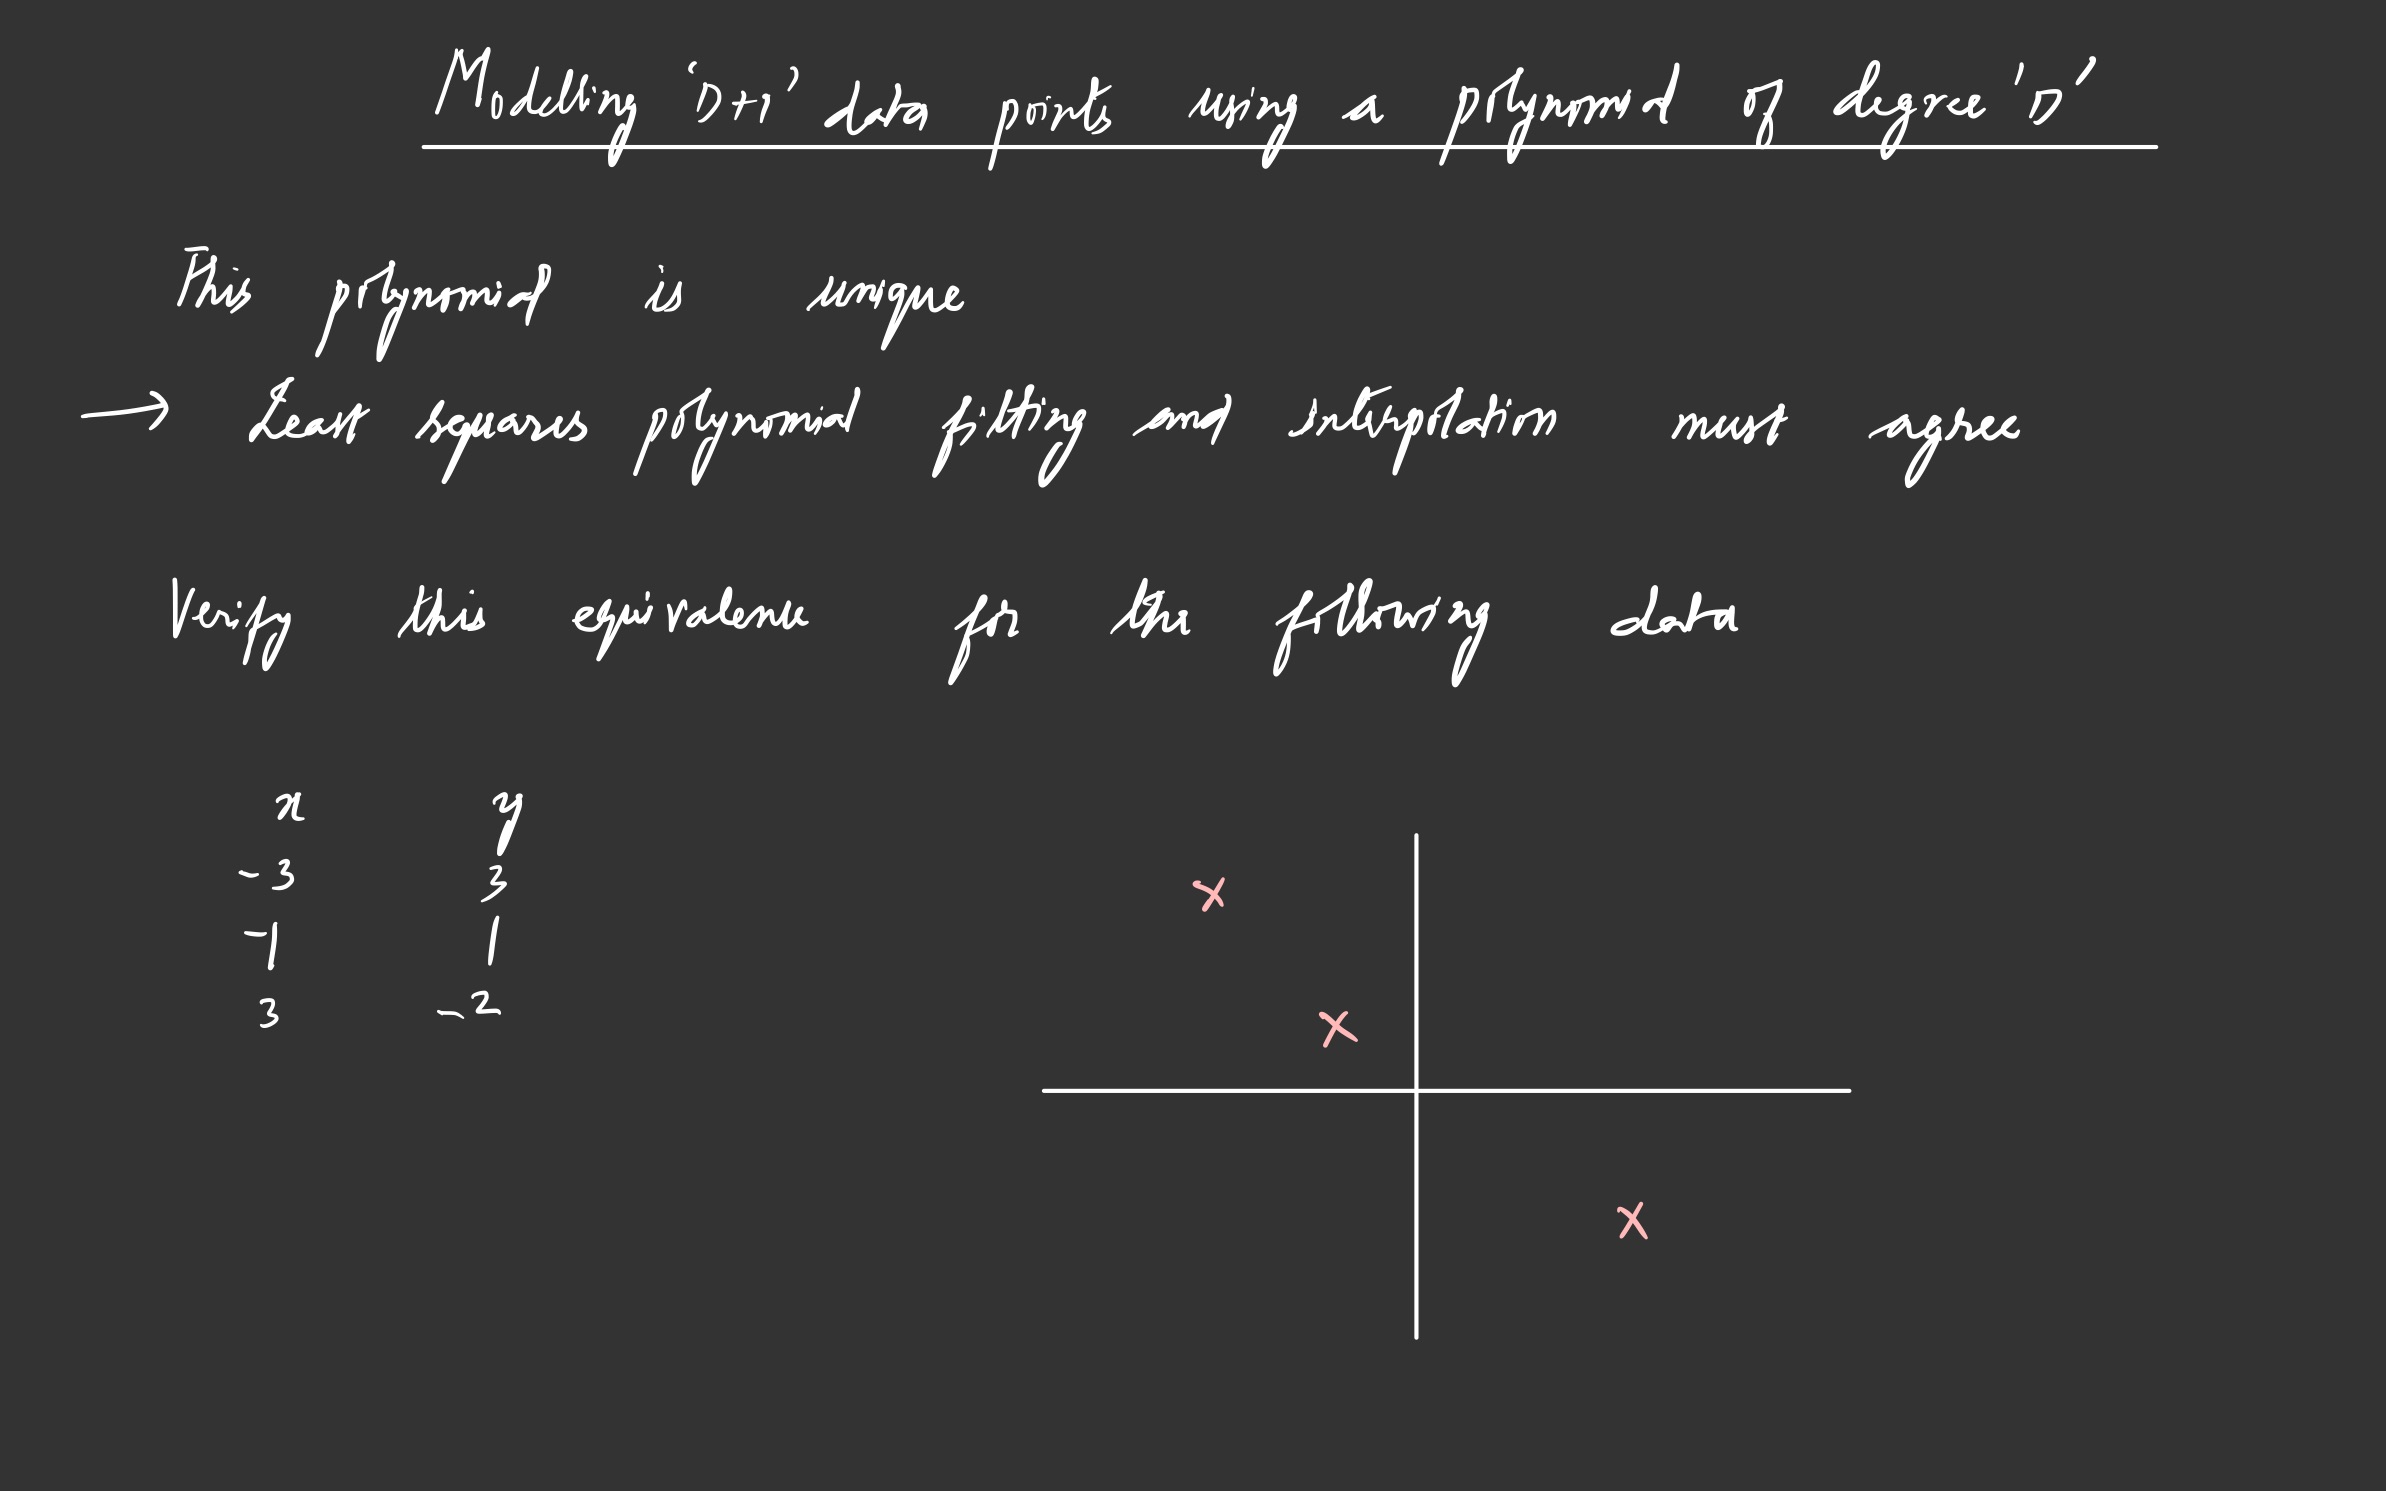 Modelling 'D+1' data points using a polynomial of degree 'D'
This polynomial is unique
→ Least squares polynomial fitting and interpolation must agree
Verify this equivalence for the following data
x y
-3 3
-1 1
3 -2